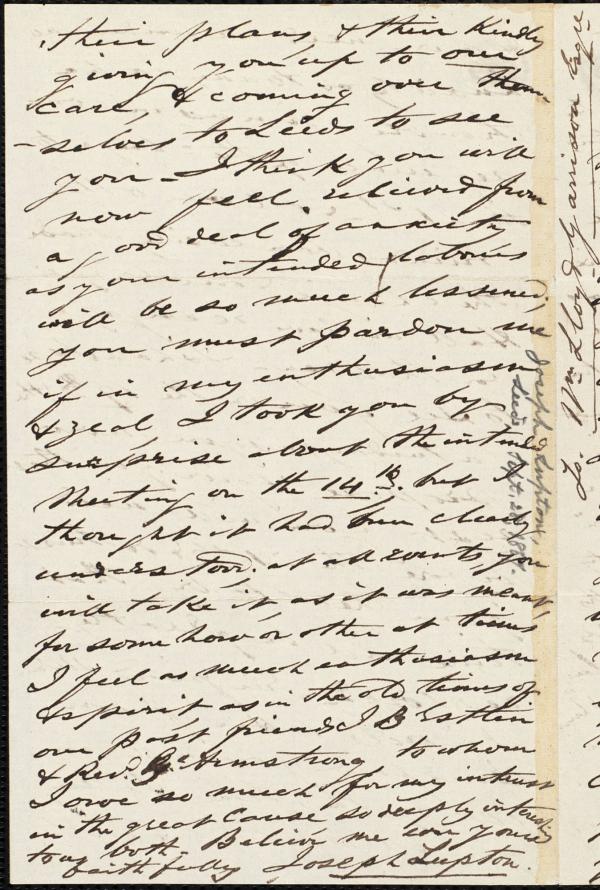 their plans, & their kindly
giving you up to our
care, & coming over them-
-selves to Leeds to see
you - I think you will
now feel relieved from
a good deal of anxiety
as your intended labours
will be so much lessened;
you must pardon me
if in my enthusiasm
& zeal I took you by
surprise about the intended
Meeting on the 14th. but I
thought it had been clearly
understood. at all events you
will take it, as it was meant,
for some how or other at times
I feel as much enthusiasm
& spirit as in the old times of
our past friends J B Estlin
& Revd. Armstrong to whom
I owe so much for my interest
in the great cause so deeply interesting
to us both. Believe me ever yours
faithfully Joseph Lupton.
To. Wm Lloyd Garrison Esqre
Joseph Lupton,
Leeds Sept.